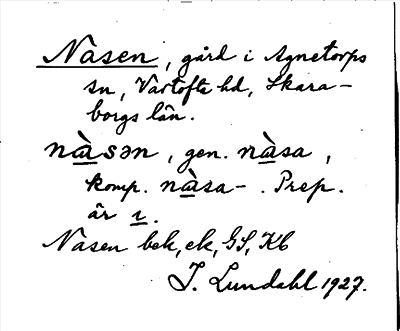 Nasen, gård i Agnetorps
sn, Vartofta hd, Skara-
borgs län.
nàsən, gen. nàsa,
komp. nàsa-. Prep.
är ı.
Nasen bek, ek, GS, Kb
I. Lundahl 1927.